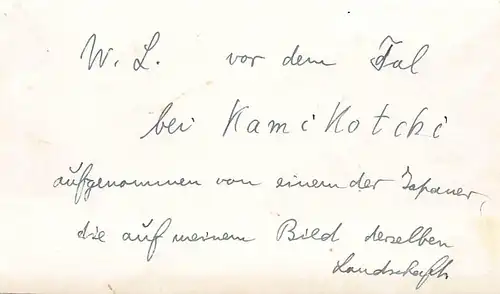 W. L. vor dem Tal
bei Kamikotchi
aufgenommen von einem der Japaner,
die auf meinem Bild derselben
Landschaft